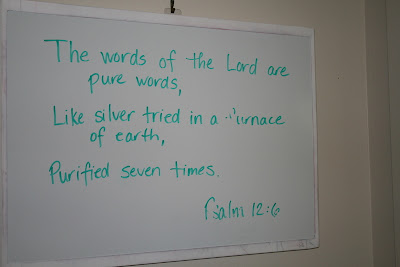 The words of the Lord are
pure words,
Like silver tried in a furnace
of earth,
Purified seven times.
Psalm 12:6